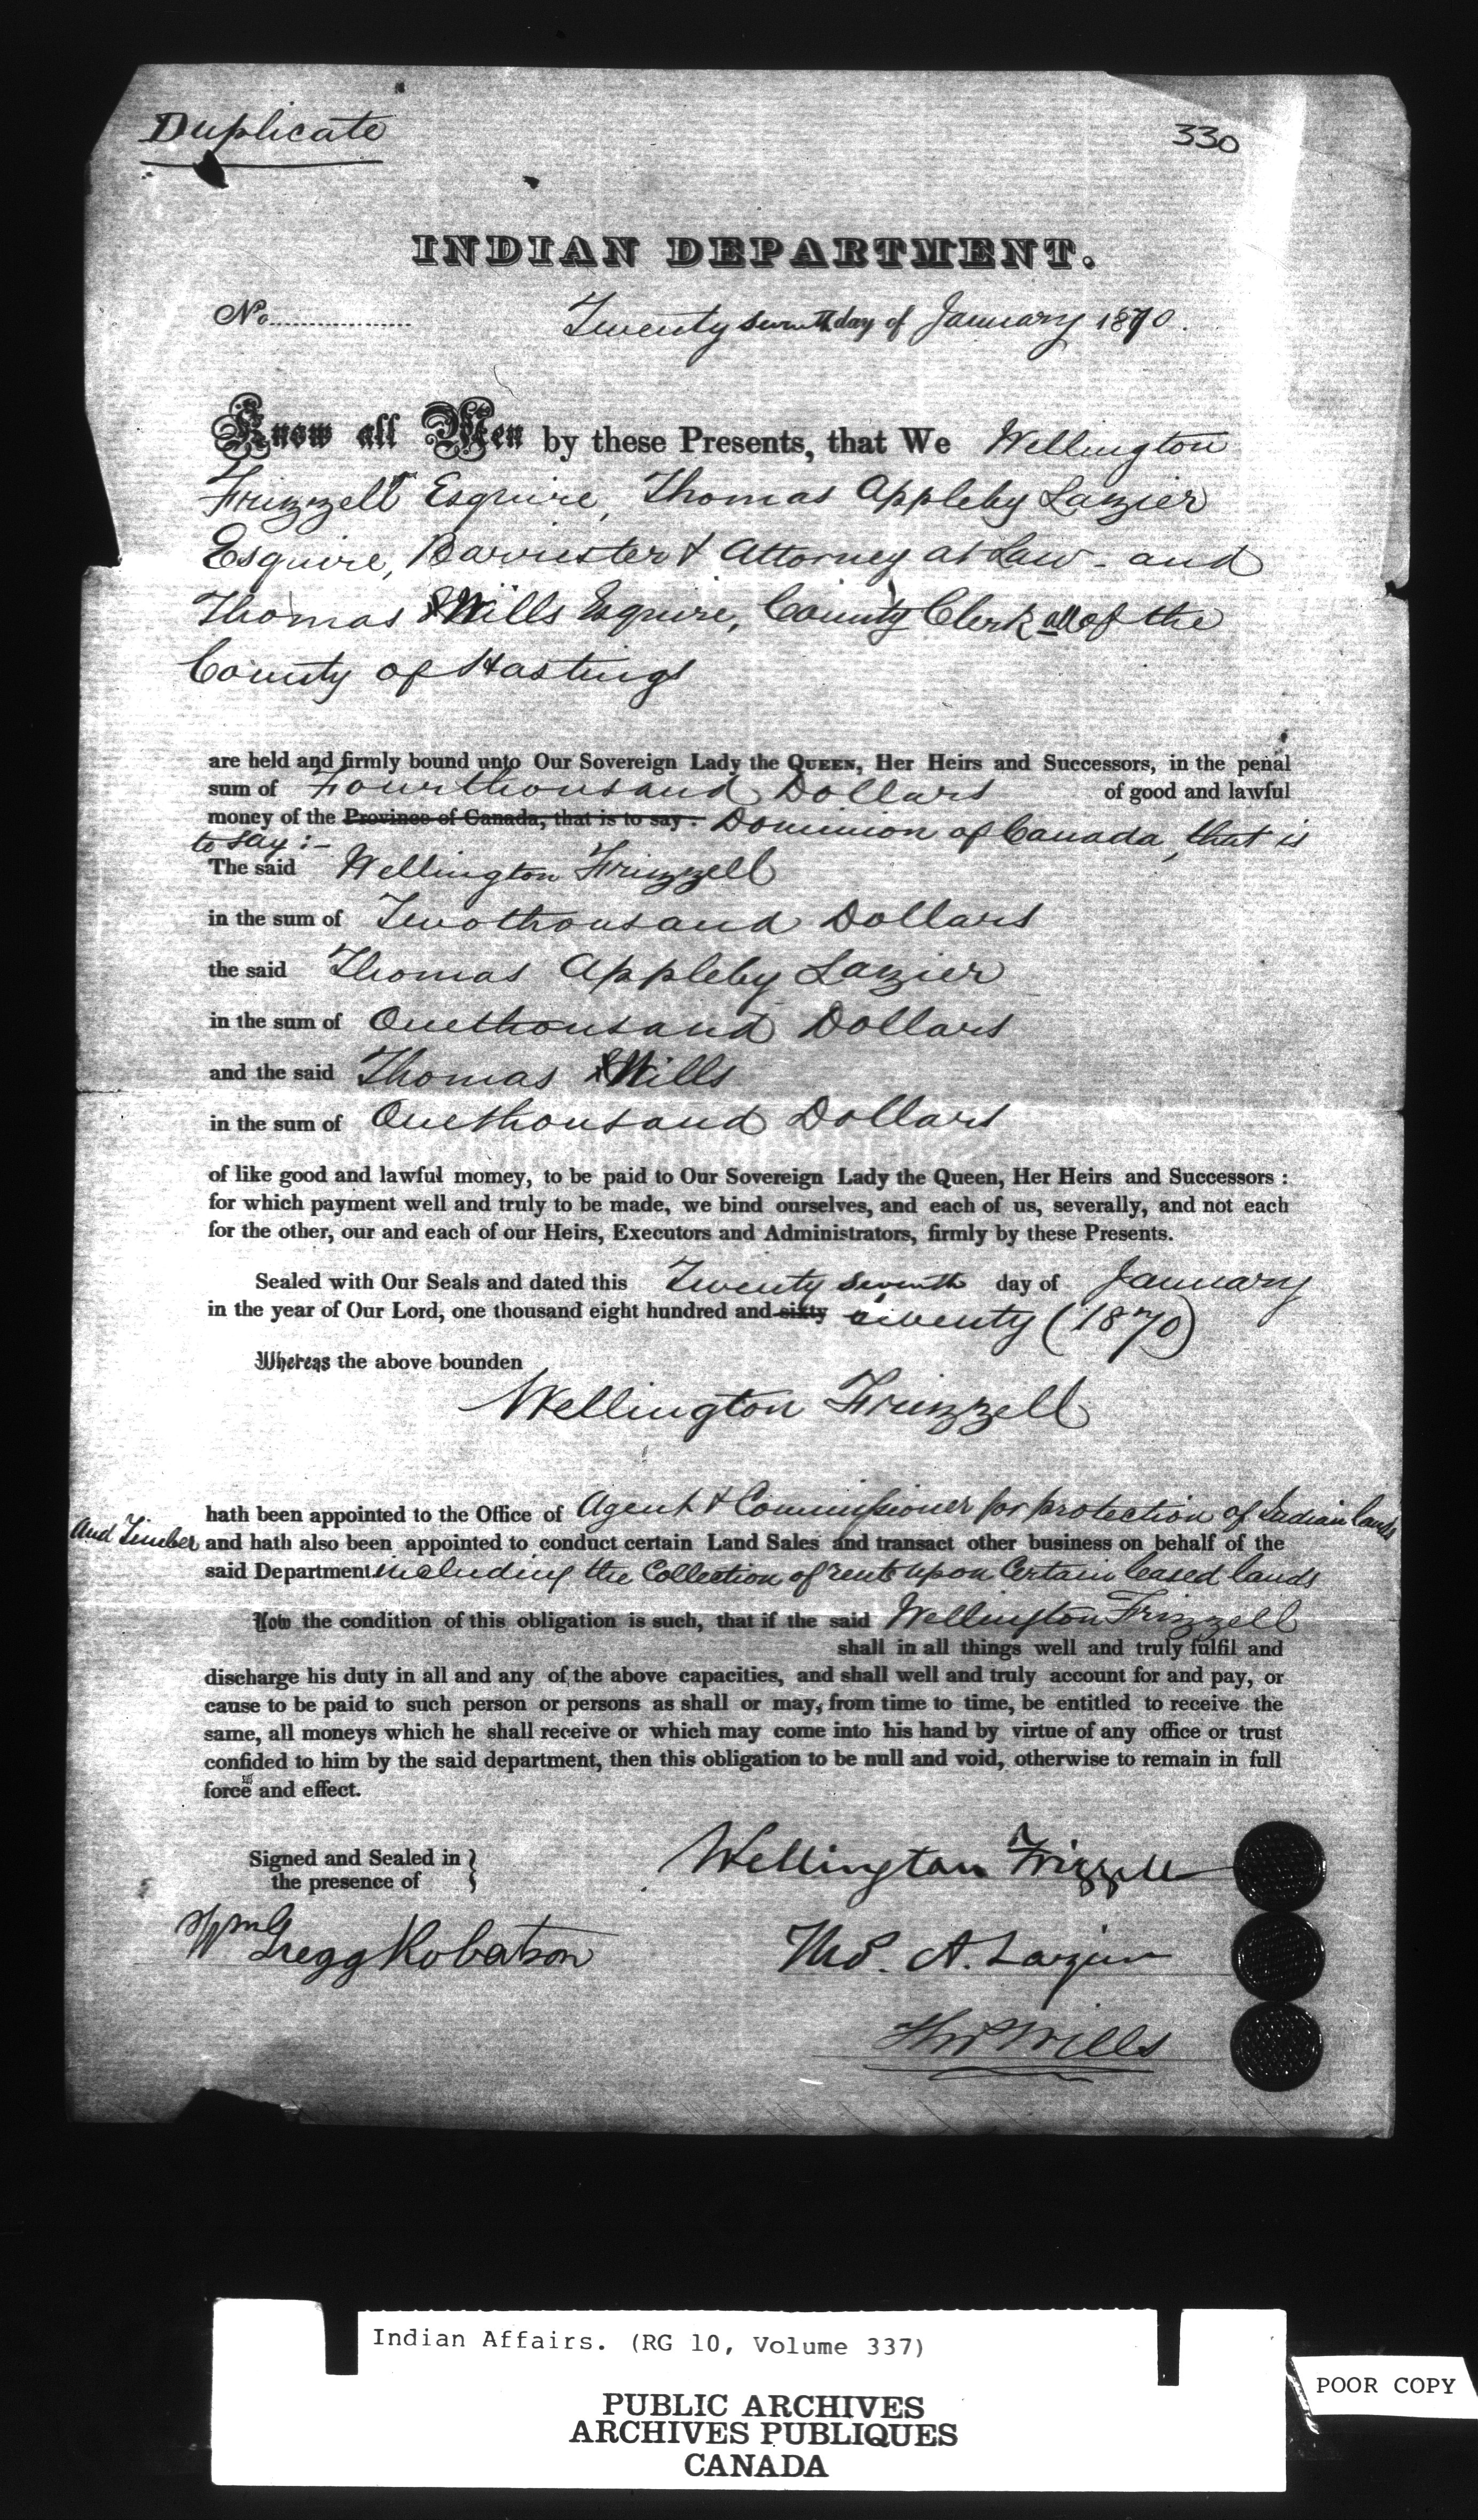 Duplicate
330
INDIAN DEPARTMENT.
No.
Twenty seventh day of January 1870.
Know all Men by these Presents, that We Wellington
Frizzell Esquire, Thomas Appleby Lazier
Esquire, Barrister & Attorney at Law - and
Thomas Wills Esquire, County Clerk all of the
County of Hastings
are held and firmly bound unto Our Sovereign Lady the QUEEN, Her Heirs and Successors, in the penal
sum of Fourthousand Dollars of good and lawful
money of the Province of Canada, that is to say: Dominion of Canada, that is
to say:-
The said Wellington Frizzell
in the sum of Twothousand Dollars
the said Thomas Appleby Lazier
in the sum of Onethousand Dollars
and the said Thomas Wills
in the sum of Onethousand Dollars
of like good and lawful momey, to be paid to Our Sovereign Lady the Queen, Her Heirs and Successors :
for which payment well and truly to be made, we bind ourselves, and each of us, severally, and not each
for the other, our and each of our Heirs, Executors and Administrators, firmly by these Presents.
Sealed with Our Seals and dated this Twenty seventh day of January
in the year of Our Lord, one thousand eight hundred and sixty seventy (1870)
Whereas the above bounden
Wellington Frizzell
hath been appointed to the Office of Agent & Commissioner for protection of Indian lands
And Timber and hath also been appointed to conduct certain Land Sales and transact other business on behalf of the
said Department including the Collection of rents upon Certain leased lands
Now the condition of this obligation is such, that if the said Wellington Frizzell
shall in all things well and truly fulfil and
discharge his duty in all and any of the above capacities, and shall well and truly account for and pay, or
cause to be paid to such person or persons as shall or may, from time to time, be entitled to receive the
same, all moneys which he shall receive or which may come into his hand by virtue of any office or trust
confided to him by the said department, then this obligation to be null and void, otherwise to remain in full
force and effect.
Signed and Sealed in
the presence of
Wellington Frizzell
Wm Gregg Robertson
Thos. A. Lazier
Thos Wills
Indian Affairs. (RG 10, Volume 337)
PUBLIC ARCHIVES
ARCHIVES PUBLIQUES
CANADA
POOR COPY